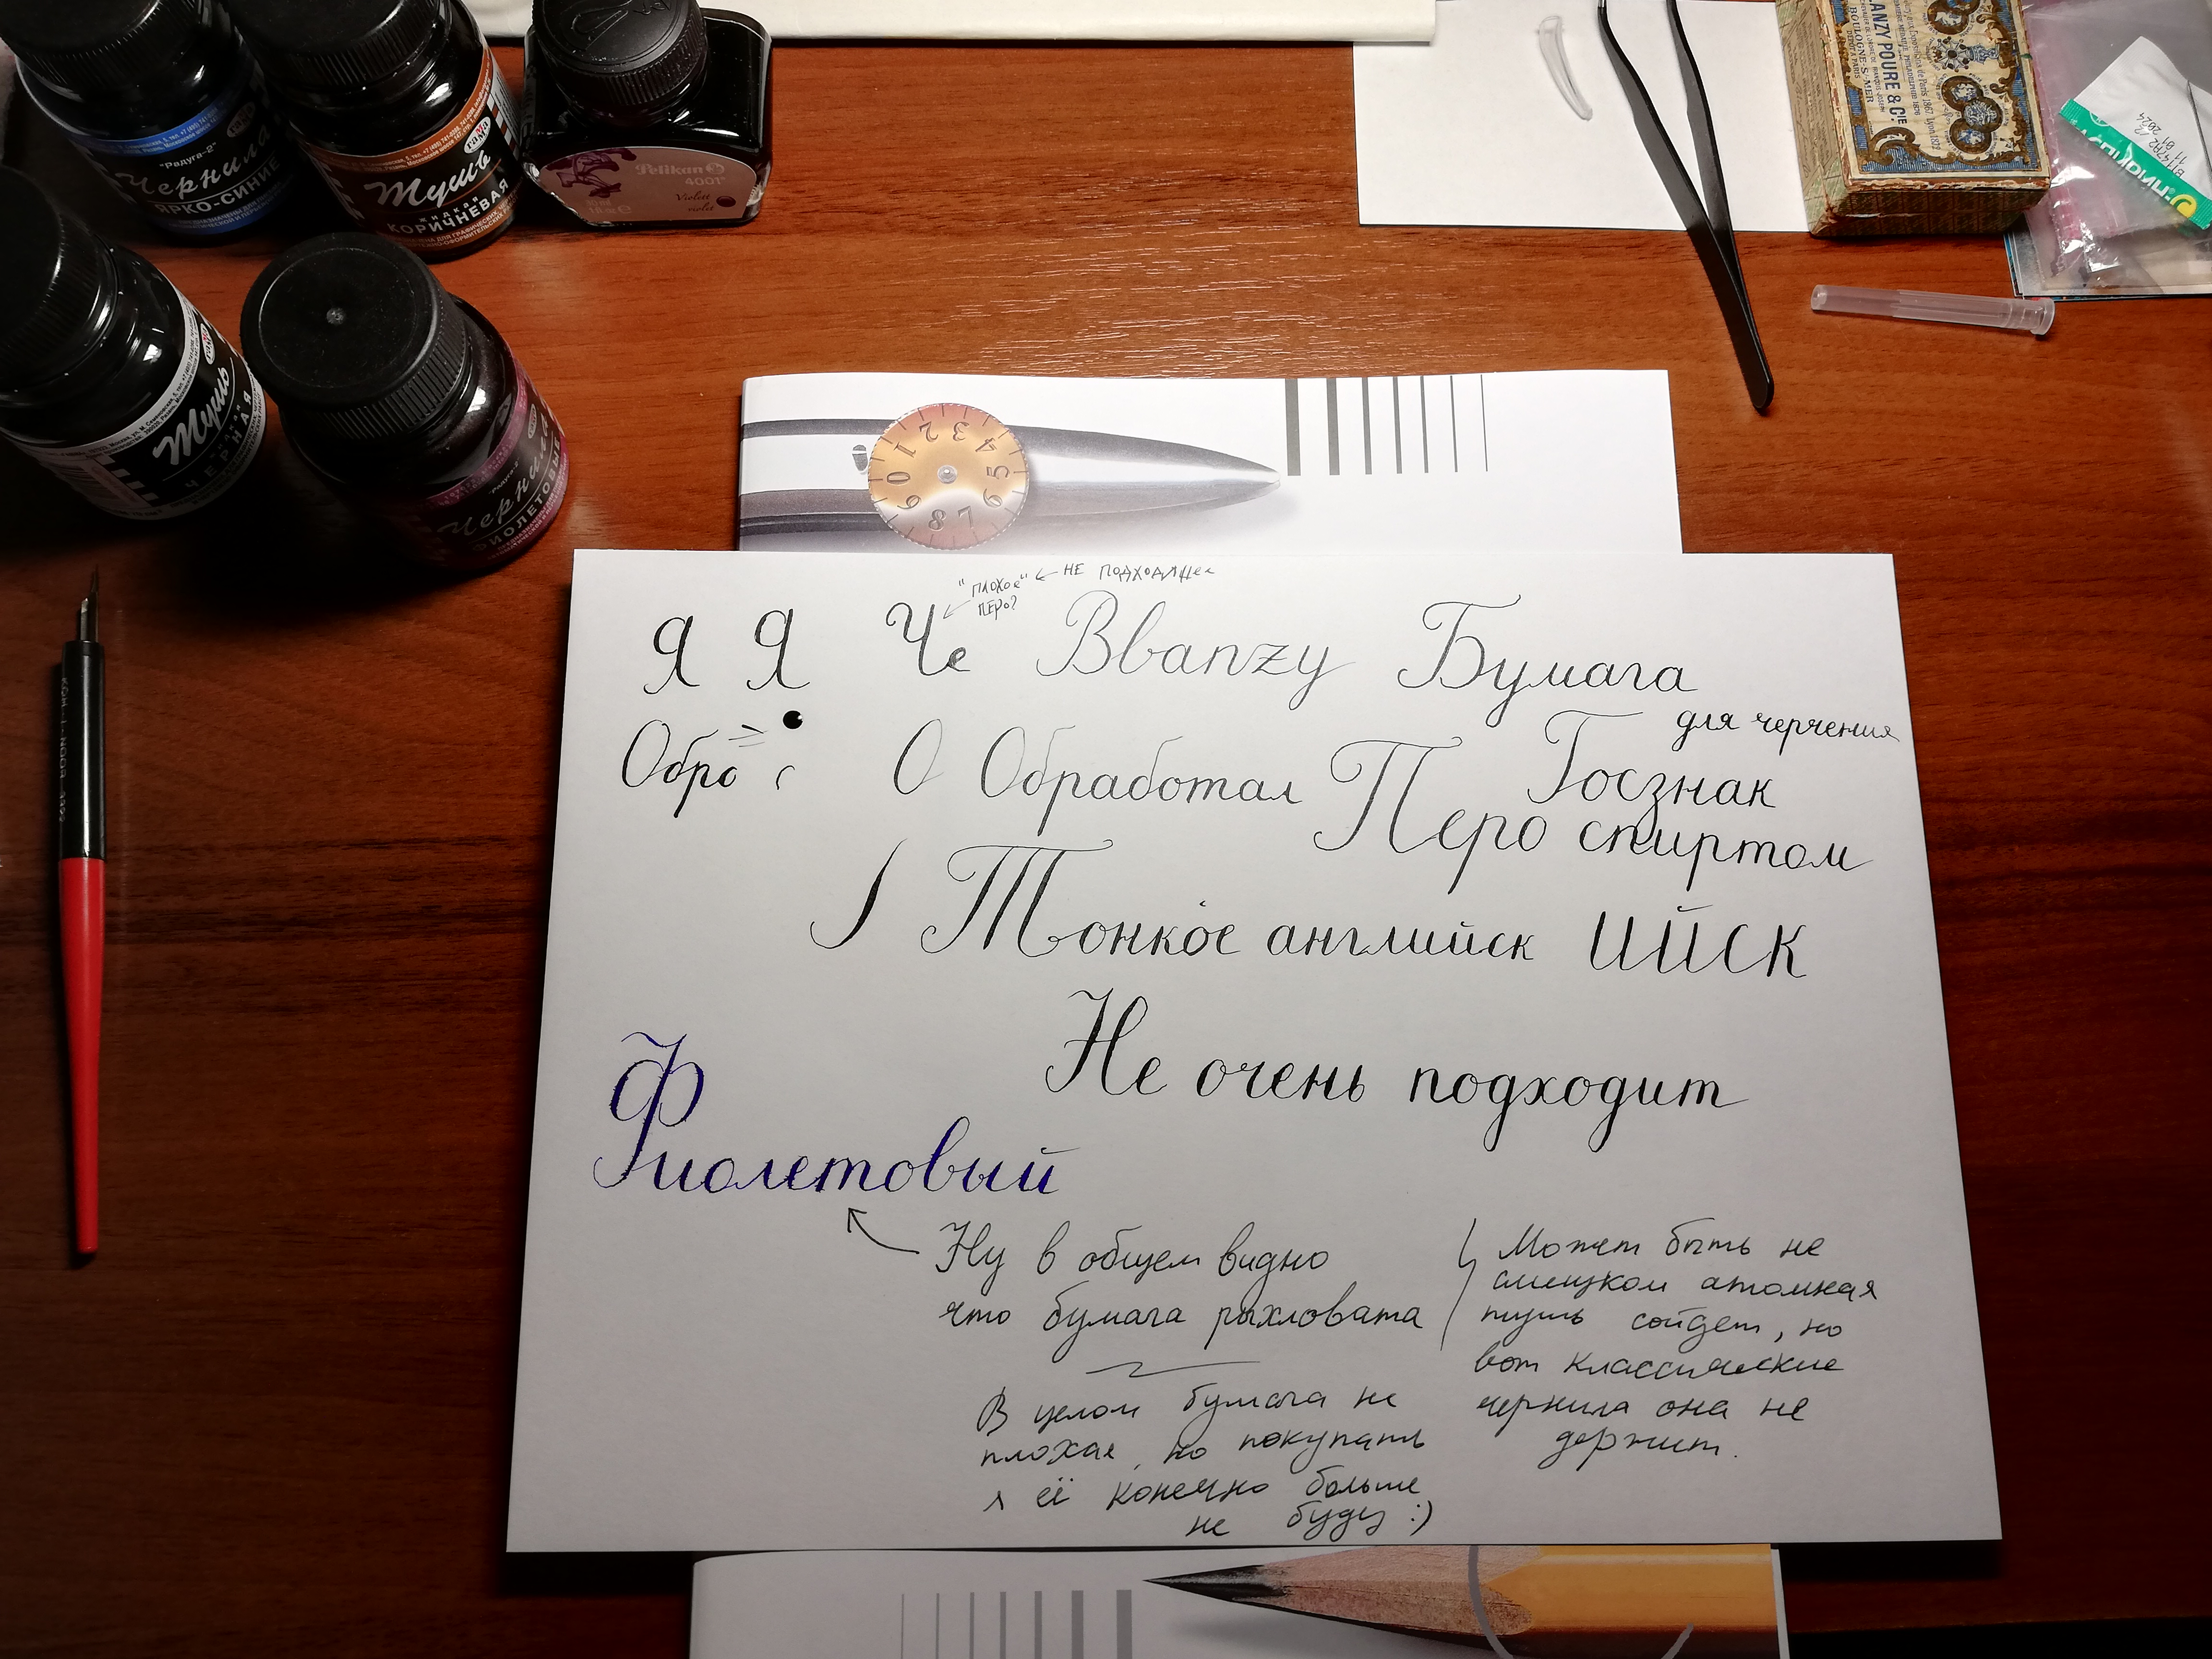 "Радуга-2"
Чернила
ЯРКО-СИНИЕ
гамма
Тушь
жидкая
КОРИЧНЕВАЯ
Pelikan
4001
Violett
violet
гамма
Тушь
ЧЕРНАЯ
гамма
"Радуга-2"
Чернила
ФИОЛЕТОВЫЕ
KOH-I-NOOR
LANZY POURE & CIE
BOULOGNE-S-MER
11 01 2024
0 1 2 3 4 5 6 7 8 9
"плохое" ← не подходящее
перо?
Я Я Че Bbanzy Бумага
для черчения
Обро О Обработал Госзнак
Перо спиртом
Тонкое английск ийск
Не очень подходит
Ф
Фиолетовый
Ну в общем видно
что бумага рыхловата
В целом бумага не
плохая, но покупать
я её конечно больше
не буду :)
Может быть не
слишком атомная
тушь сойдет, но
вот классические
чернила она не
держит.